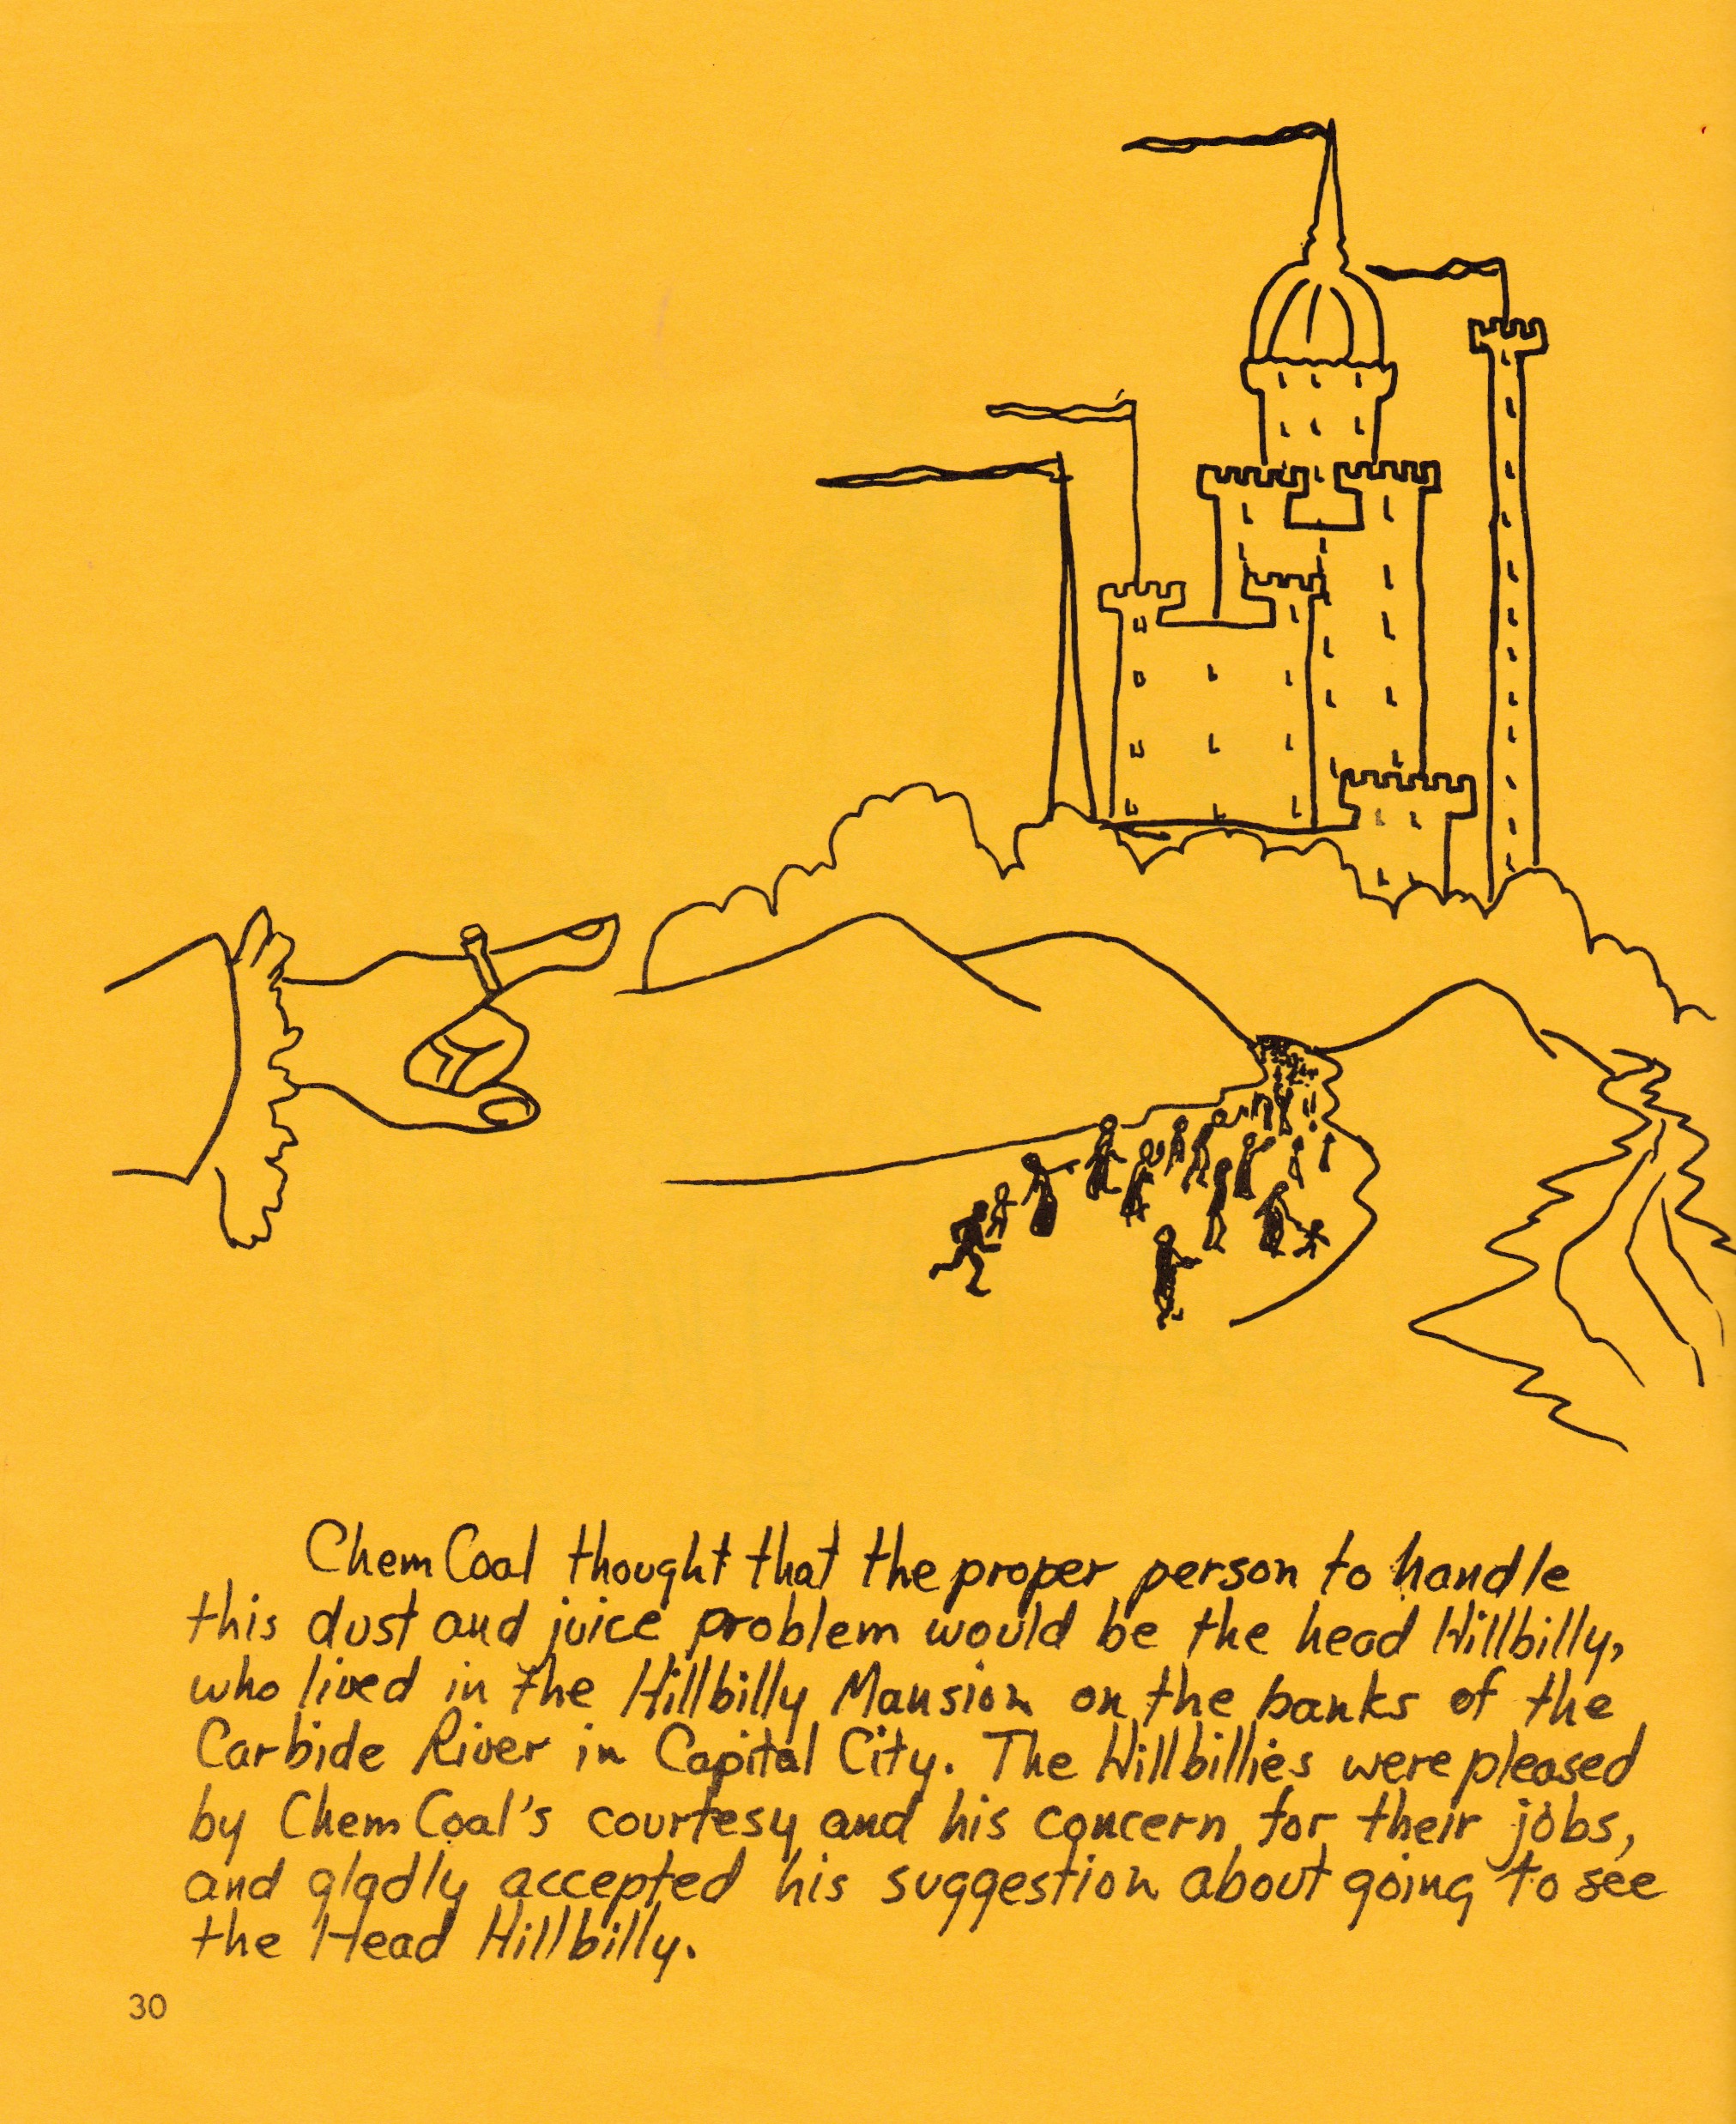 Chem Coal thought that the proper person to handle
this dust and juice problem would be the head Hillbilly,
who lived in the Hillbilly Mansion on the banks of the
Carbide River in Capital City. The Hillbillies were pleased
by Chem Coal's courtesy and his concern for their jobs,
and gladly accepted his suggestion about going to see
the Head Hillbilly.
30